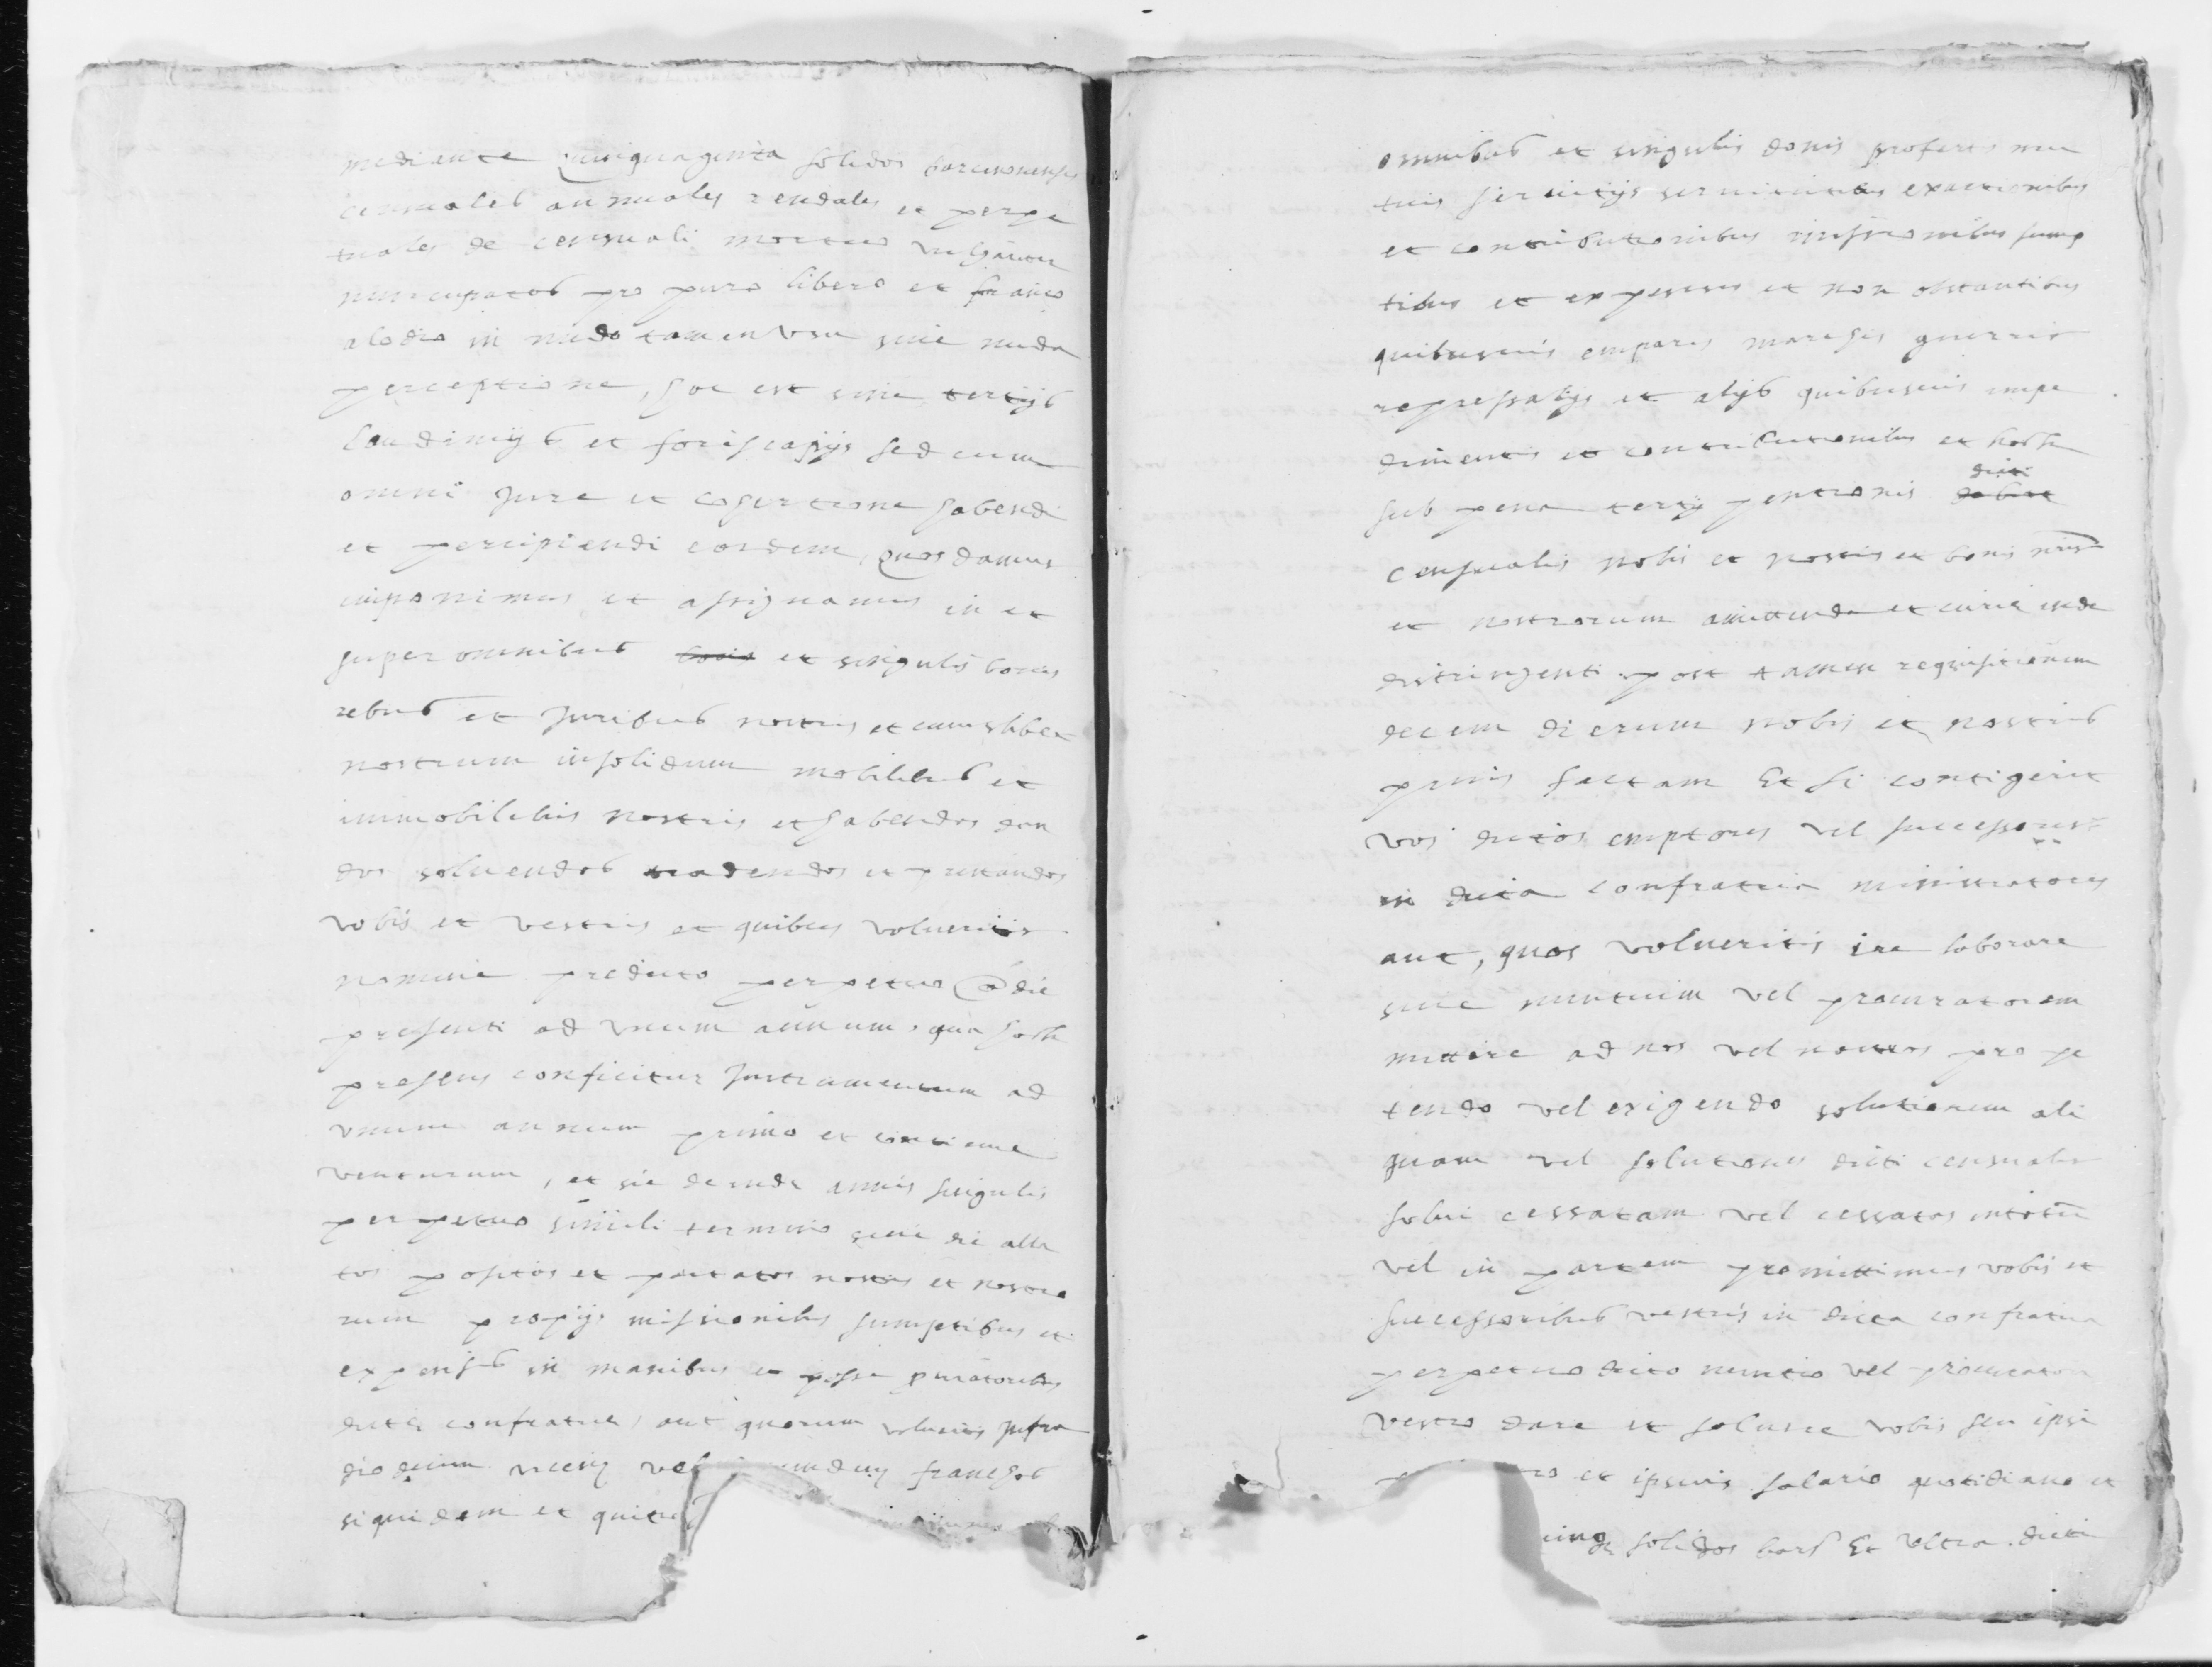 mediante quinquaginta solidos barcinonenses
censuales annuales rendales et perpe
tuales de censuali mortuo vulgariter
nuncupatos pro puro libero et franco
alodio in nudo tamen usu sive nuda
perceptione, hoc est sine tertijs
laudimijs et foriscapijs sed cum
omni jure et cohertione habendi
et percipiendi eosdem, quos damus
imponimus et assignamus in et
super omnibus bonis et singulis bonis
rebus et juribus nostris et cuiuslibet
nostrum insolidum mobilibus et
immobilibus nostris et habendos dan
dos solvendos tradendos et prestandos
vobis et vestris et quibus volueritis
nomine predicto perpetuo a die
presenti ad unum annum, qua hoch
presens conficitur Instrumentum ad
unum annum primo et continue
venturum, et sic deinde annis singulis
perpetuo simili termino sive die alla
tos positos et portatos nostris et nostro
rum propijs missionibus sumptibus et
expensis in manibus et posse
dicte confratrie, aut quorum volueritis Infra
franchos
siquidem et
omnibus et singulis donis profertis mu
tuis servitijs servitutibus exactionibus
et contributionibus missionibus sump
tibus et expensis et non obstantibus
quibusvis emparis marchis guerris
repressalijs et alijs quibusvis impe
dimentis et contributionibus et hoch
sub pena tertij pentionis dicti
censualis nobis et nostris et bonis nris
et nostrorum amittenda et curie inde
distringenti post tamen requisitionem
decem dierum nobis et nostris
prius factam Et si contigerit
vos dictos emptores vel successores
in dicta confratria ministratores
aut, quos volueritis ire laborare
sive nuntium vel procuratorem
mittere ad nos vel nostros pro pe
tendo vel exigendo solutionem ali
quam vel solutiones dicti censualis
solvi cessatam vel cessatas intotum
vel in partem promittimus vobis et
successoribus vestris in dicta confratria
perpetuo dicto nuntio vel procuratori
vestro dare et solvere vobis seu ipsi
et ipsius salario quotidiano et
solidos bars Et ultra dicti